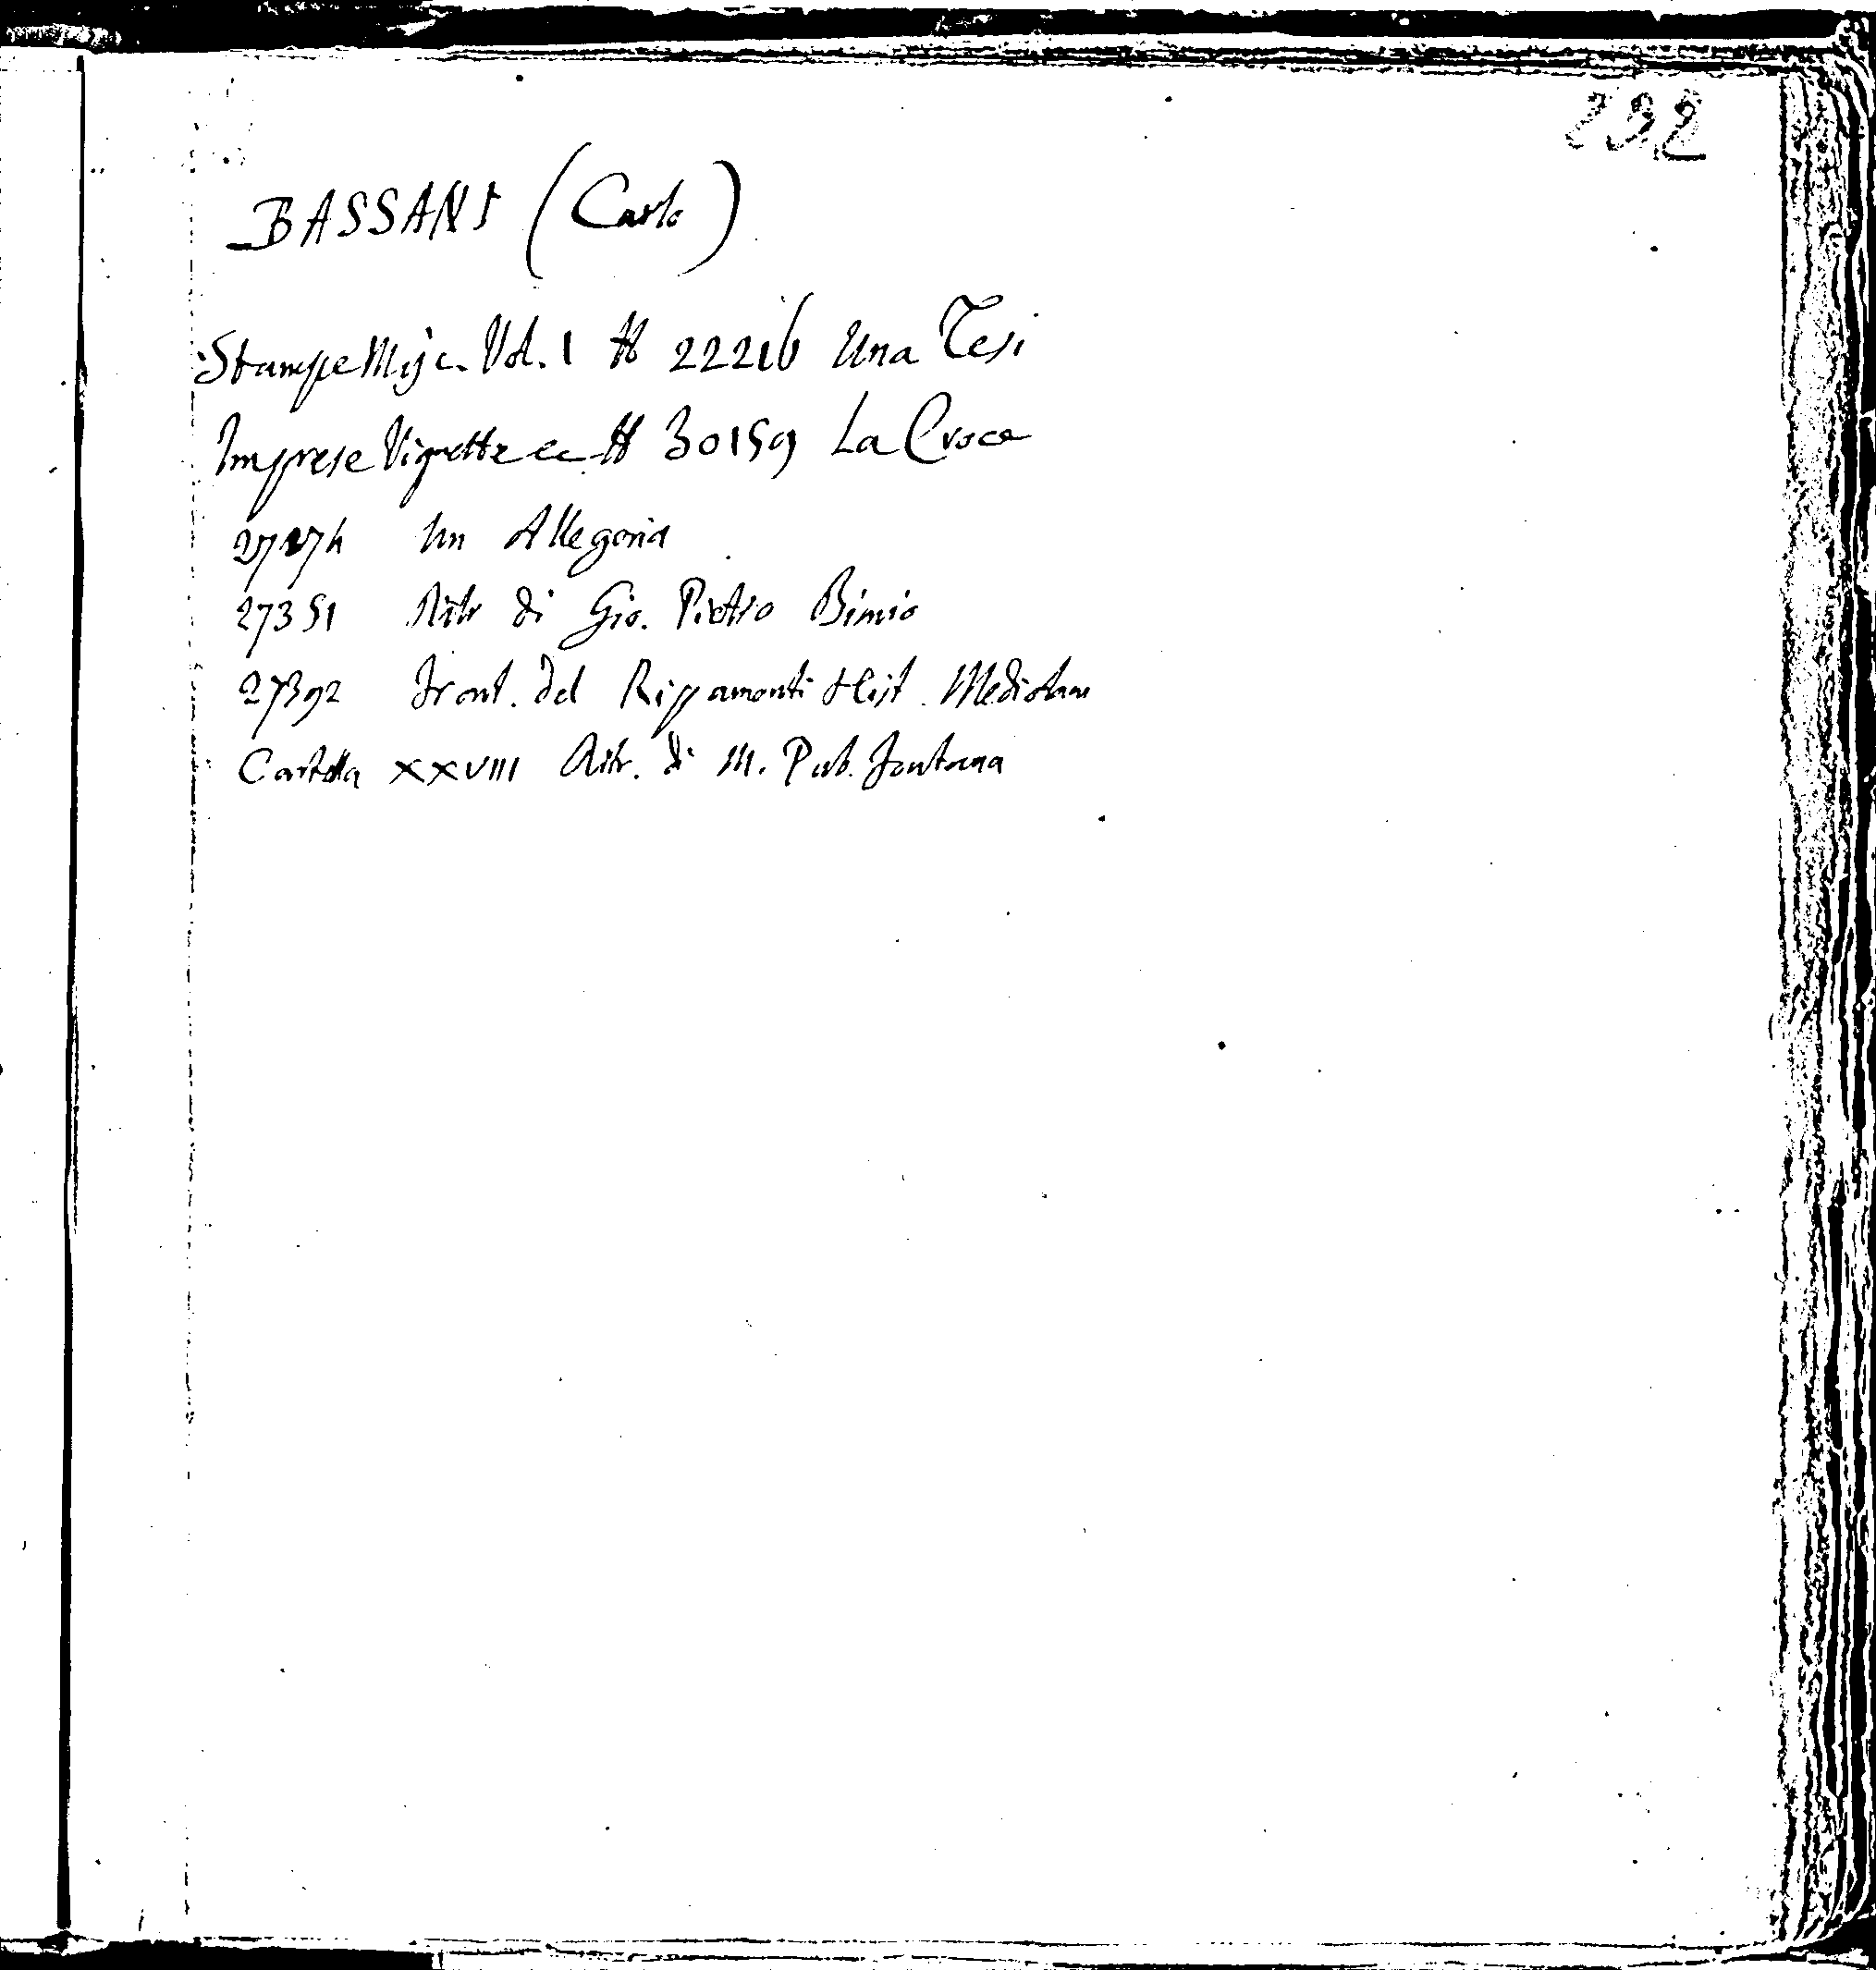 232
BASSANI (Carlo)
Stampe Misc. Vol. 1 H 22216 Una Tesi
Imprese Vignette ec H 30159 La Croce
Un Allegoria
27351 Ritr di Gio. Pietro Bimio
27392 Front. del Rippamonti Hist. Mediolan
Cartella XXVIII Ritr. di M. Pub. Fontana